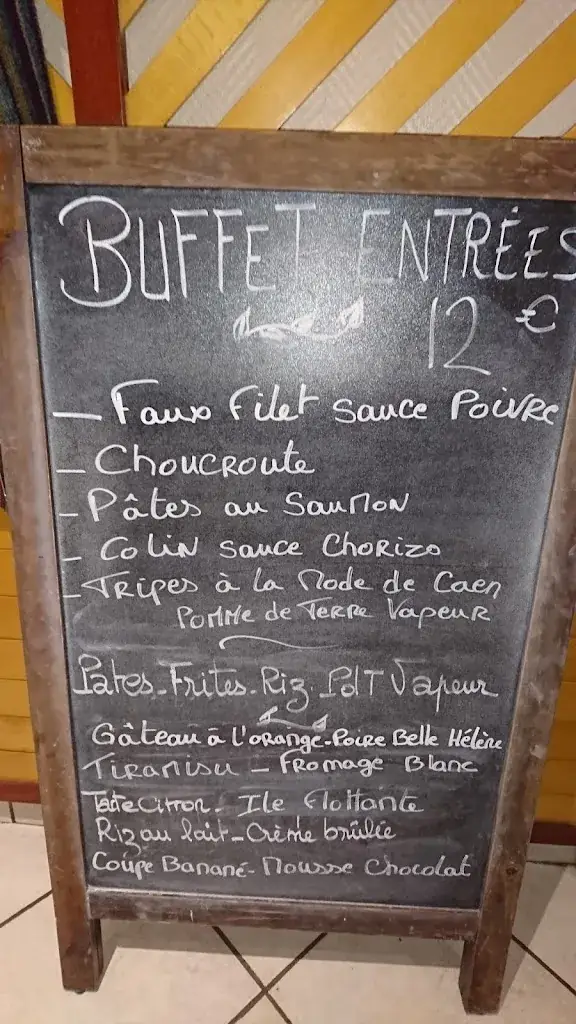 BUFFET ENTRÉES
12 €
— Faux Filet Sauce Poivre
— Choucroute
- Pâtes au Saumon
- Colin Sauce Chorizo
- Tripes à la Mode de Caen
Pomme de Terre Vapeur
Pates - Frites - Riz - PdT Vapeur
Gâteau à l'orange - Poire Belle Hélène
Tiramisu - Fromage Blanc
Tarte Citron - Ile flottante
Riz au lait - Crème brûlée
Coupe Banané - Mousse Chocolat